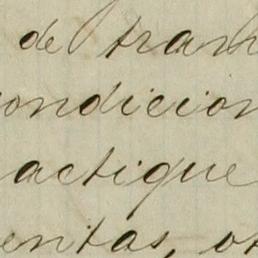 de tram
condicion
actique
entas, ot